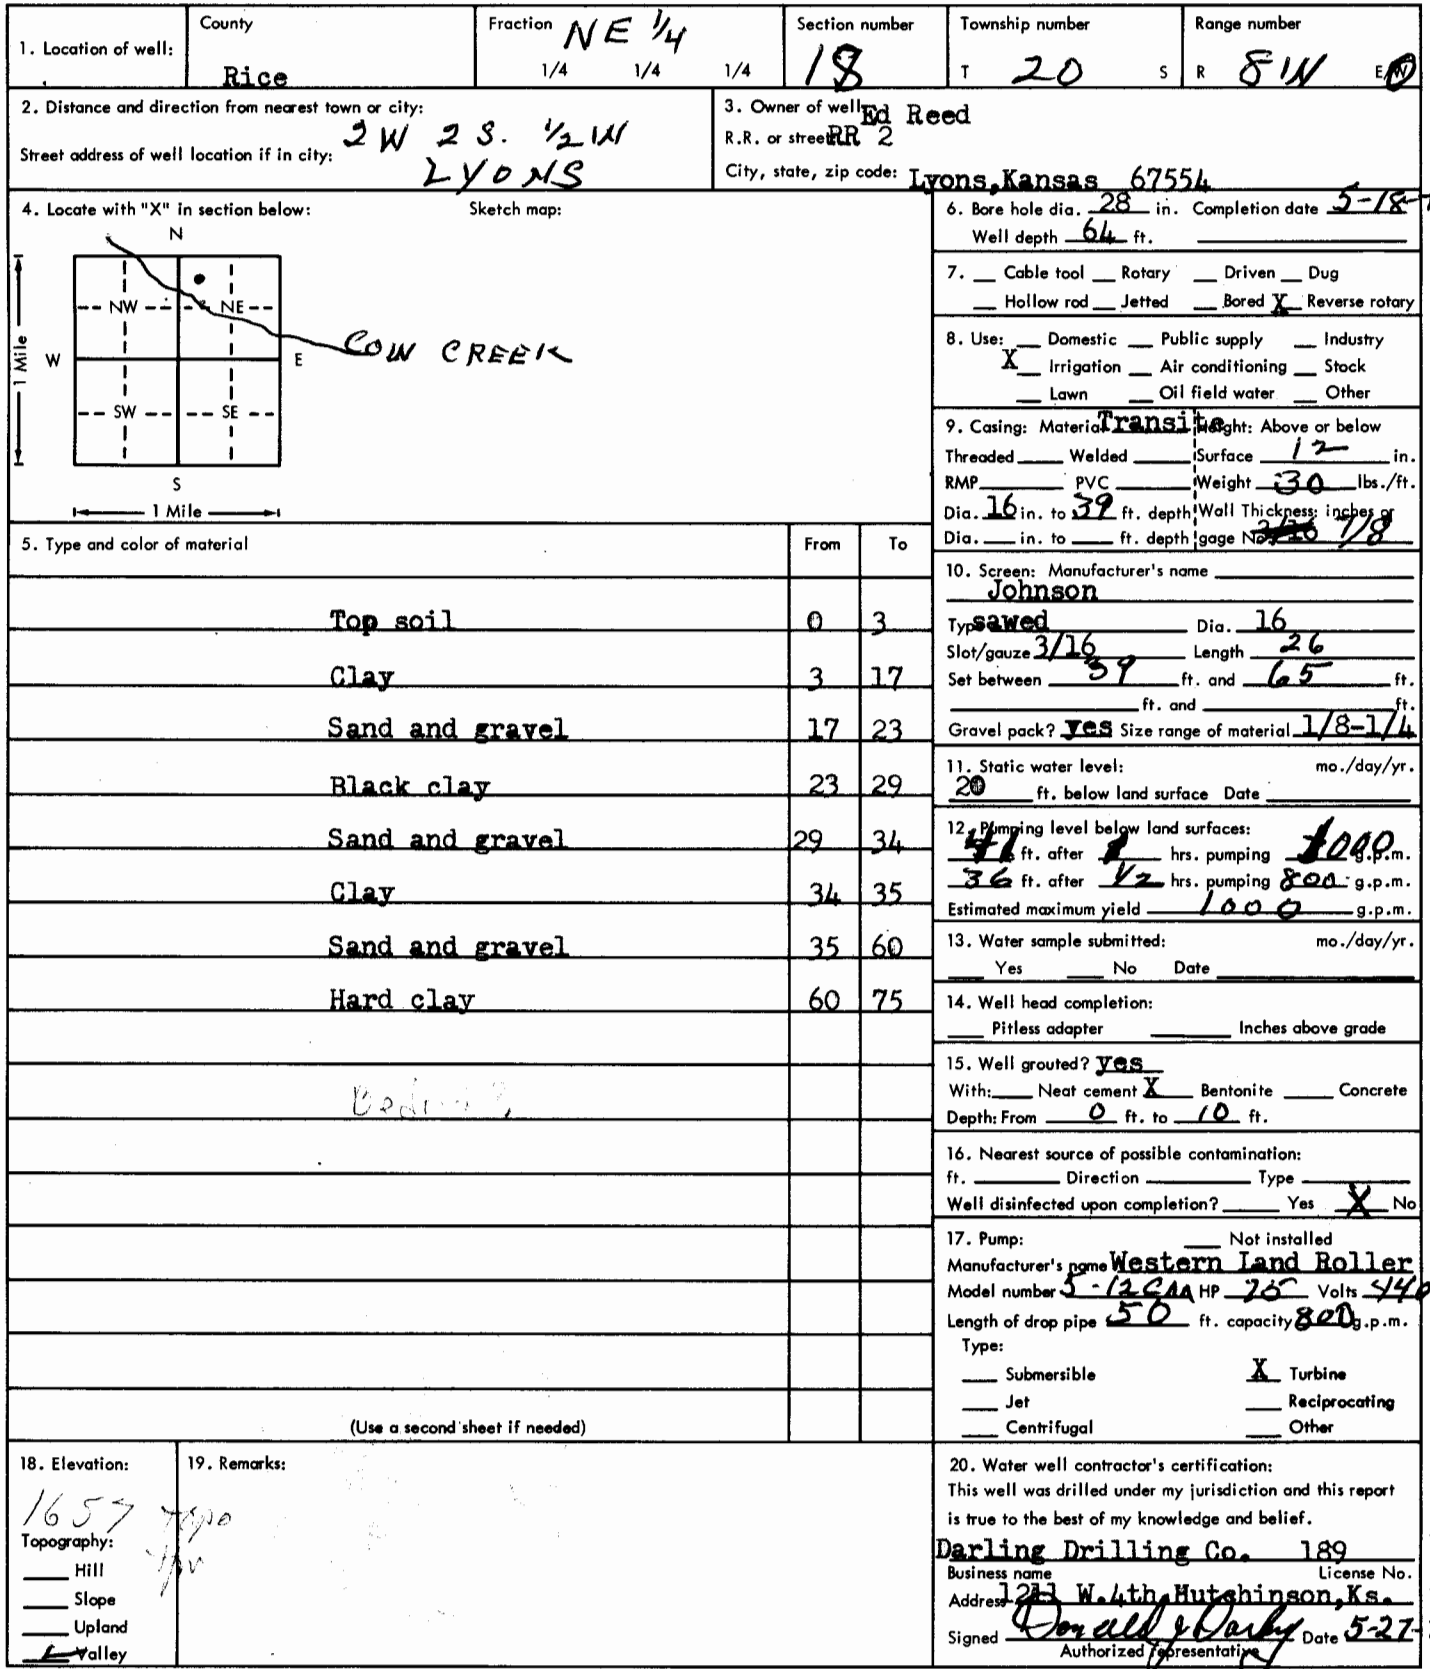 1. Location of well:
County
Rice
Fraction NE 1/4
1/4 1/4 1/4
Section number
18
Township number
T 20 S
Range number
R 8W E/W
2. Distance and direction from nearest town or city:
2W 2S. 1/2W
Street address of well location if in city:
LYONS
3. Owner of well: Ed Reed
R.R. or street: RR 2
City, state, zip code: Lyons,Kansas 67554
4. Locate with "X" in section below: Sketch map:
N
NW NE
W E
SW SE
S
1 Mile
1 Mile
COW CREEK
5. Type and color of material From To
Top soil 0 3
Clay 3 17
Sand and gravel 17 23
Black clay 23 29
Sand and gravel 29 34
Clay 34 35
Sand and gravel 35 60
Hard clay 60 75
(Use a second sheet if needed)
6. Bore hole dia. 28 in. Completion date 5-18-
Well depth 64 ft.
7. Cable tool Rotary Driven Dug
Hollow rod Jetted Bored X Reverse rotary
8. Use: Domestic Public supply Industry
X Irrigation Air conditioning Stock
Lawn Oil field water Other
9. Casing: Material Transite Height: Above or below
Threaded Welded Surface 12 in.
RMP PVC Weight 30 lbs./ft.
Dia. 16 in. to 39 ft. depth Wall Thickness: inches or
Dia. in. to ft. depth gage No. 7/8
10. Screen: Manufacturer's name
Johnson
Type sawed Dia. 16
Slot/gauze 3/16 Length 26
Set between 39 ft. and 65 ft.
ft. and ft.
Gravel pack? Yes Size range of material 1/8-1/4
11. Static water level: mo./day/yr.
20 ft. below land surface Date
12. Pumping level below land surfaces:
41 ft. after 1 hrs. pumping 1000 g.p.m.
36 ft. after 1/2 hrs. pumping 800 g.p.m.
Estimated maximum yield 1000 g.p.m.
13. Water sample submitted: mo./day/yr.
Yes No Date
14. Well head completion:
Pitless adapter Inches above grade
15. Well grouted? yes
With: Neat cement X Bentonite Concrete
Depth: From 0 ft. to 10 ft.
16. Nearest source of possible contamination:
ft. Direction Type
Well disinfected upon completion? Yes X No
17. Pump: Not installed
Manufacturer's name Western Land Roller
Model number HP 75 Volts 440
Length of drop pipe 50 ft. capacity 800 g.p.m.
Type:
Submersible X Turbine
Jet Reciprocating
Centrifugal Other
18. Elevation:
1657 Topo
Topography:
Hill
Slope
Upland
Valley
19. Remarks:
20. Water well contractor's certification:
This well was drilled under my jurisdiction and this report
is true to the best of my knowledge and belief.
Darling Drilling Co. 189
Business name License No.
Address 1211 W.4th,Hutchinson,Ks.
Signed Date 5-27-
Authorized representative